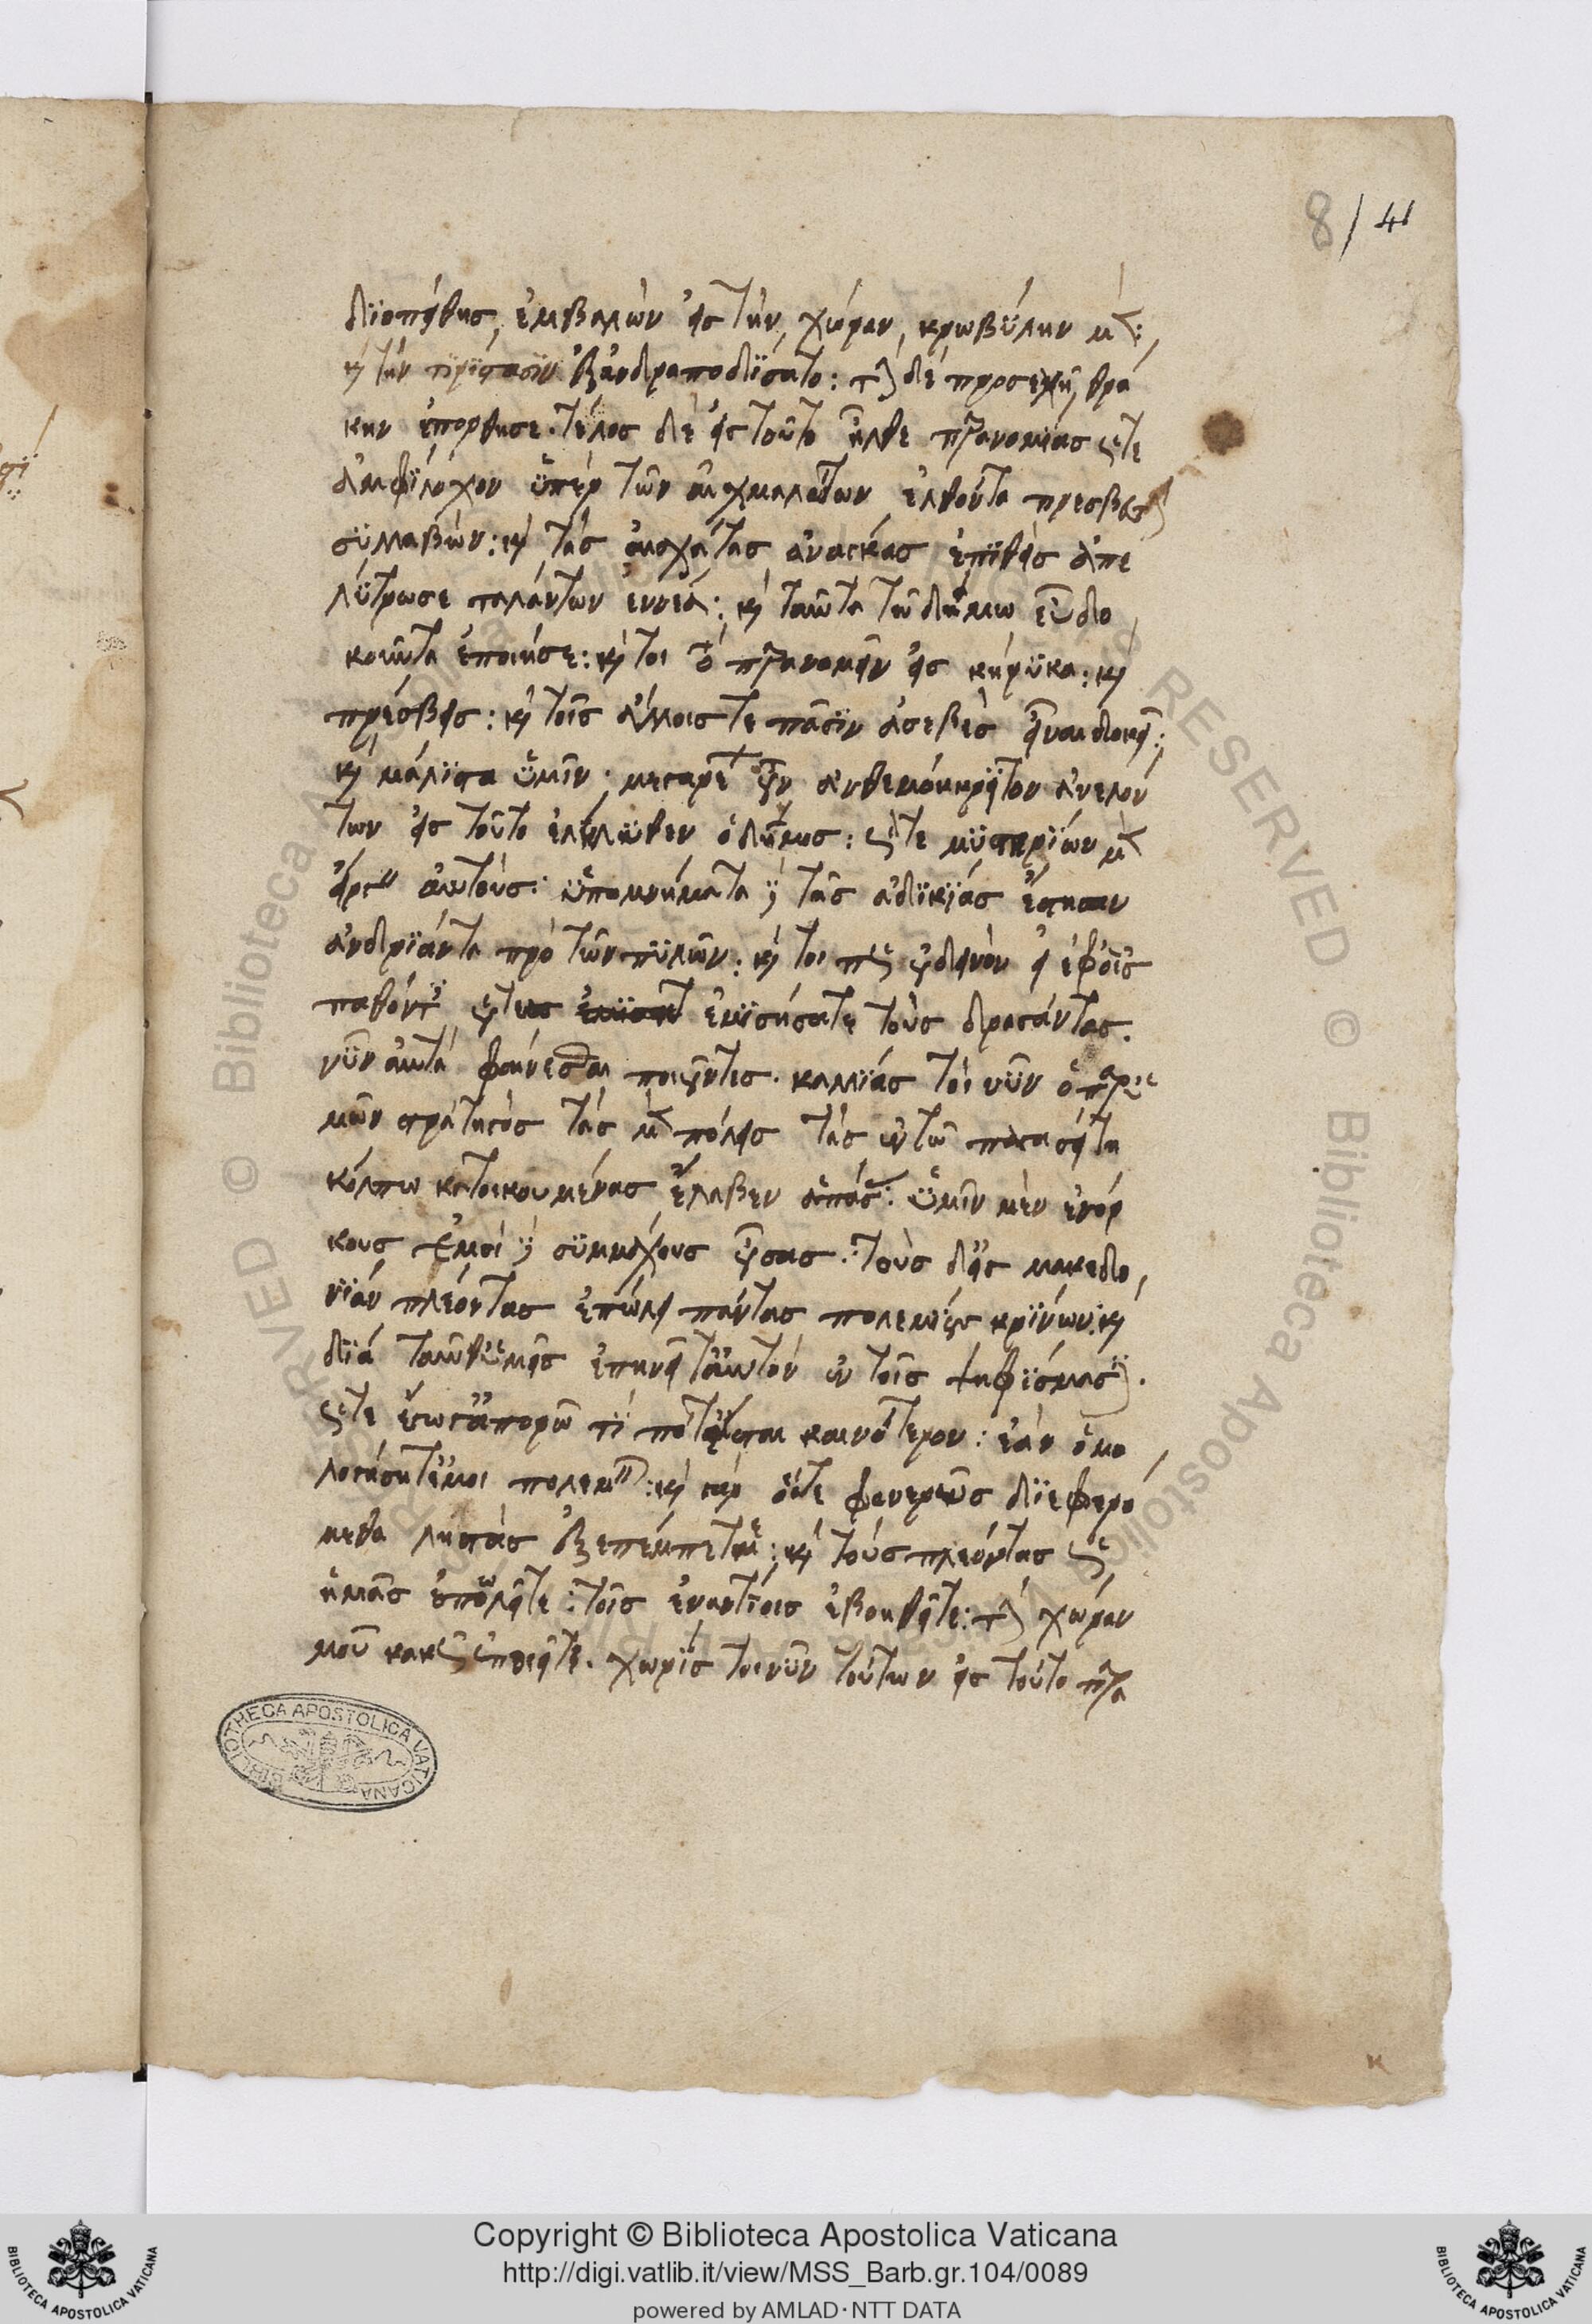 8/41
διοπείθης, ἐμβαλὼν εἰς τὴν, χώραν, κρωβύλην μὲν:
καὶ τὴν τιρίστασιν ἐξανδραποδίσατο: τὴν δὲ προσεχῆ, θρά
κην ἐπόρθησε. τέλος δὲ εἰς τοῦτο ἦλθε παρανομίας ὥστε
ἀμφίλοχον ὑπὲρ τῶν αἰχμαλώτων ἐλθόντα πρεσβευτὴν
συλλαβών: καὶ τὰς ἐσχάτας ἀνάγκας ἐπιθεὶς ἀπε
λύτρωσε ταλάντων ἐννέα: καὶ ταῦτα τῷ δήμῳ εὐδο
κοῦντα ἐποίησε: καί τοι τὸ παρανομεῖν εἰς κήρυκα: καὶ
πρέσβεις: καὶ τοῖς ἄλλοις τε πᾶσιν ἀσεβὲς εἶναι δοκεῖ:
καὶ μάλιστα ὑμῖν. μεγαρέων γοῦν ἀνθεμόκριτον ἀνελόν
των εἰς τοῦτο ἐλήλυθεν ὁ δῆμος: ὥστε μυστηρίων μὲν
εἶργον αὐτούς: ὑπομνήματα δὲ τῆς ἀδικίας ἔστησαν
ἀνδριάντα πρὸ τῶν πυλῶν: καί τοι πῶς οὐ δεινὸν εἰ ἐφ' οἷς
παθόντες οὕτως ἐμισήσατε τοὺς δράσαντας.
νῦν αὐτὰ φαίνεσθαι ποιοῦντες. καλλίας τοίνυν ὁ παρ' ὑ
μῶν στρατηγὸς τὰς μὲν πόλεις τὰς ἐν τῷ παγασίτῃ
κόλπῳ κατοικουμένας ἔλαβεν ἁπάσας: ὑμῖν μὲν ἐνόρ
κους, ἐμοὶ δὲ συμμάχους οὔσας. τοὺς δ' εἰς μακεδο
νίαν πλέοντας ἐπώλει πάντας πολεμίους κρίνων: καὶ
διὰ ταῦθ' ὑμεῖς ἐπῃνεῖτ' αὐτὸν ἐν τοῖς ψηφίσμασι.
ὥστε ἔγωγ' ἀπορῶ τί ποτ' ἔσται καινότερον: ἐὰν ὁμο
λογήσητέ μοι πολεμεῖν: καὶ γὰρ ὅτε φανερῶς διεφερό
μεθα λῃστὰς ἐξεπέμπετε: καὶ τοὺς πλέοντας ὡς
ἡμᾶς ἐπωλεῖτε: τοῖς ἐναντίοις ἐβοηθεῖτε: τὴν χώραν
μοῦ κακῶς ἐποιεῖτε. χωρὶς τοίνυν τούτων εἰς τοῦτο παρα